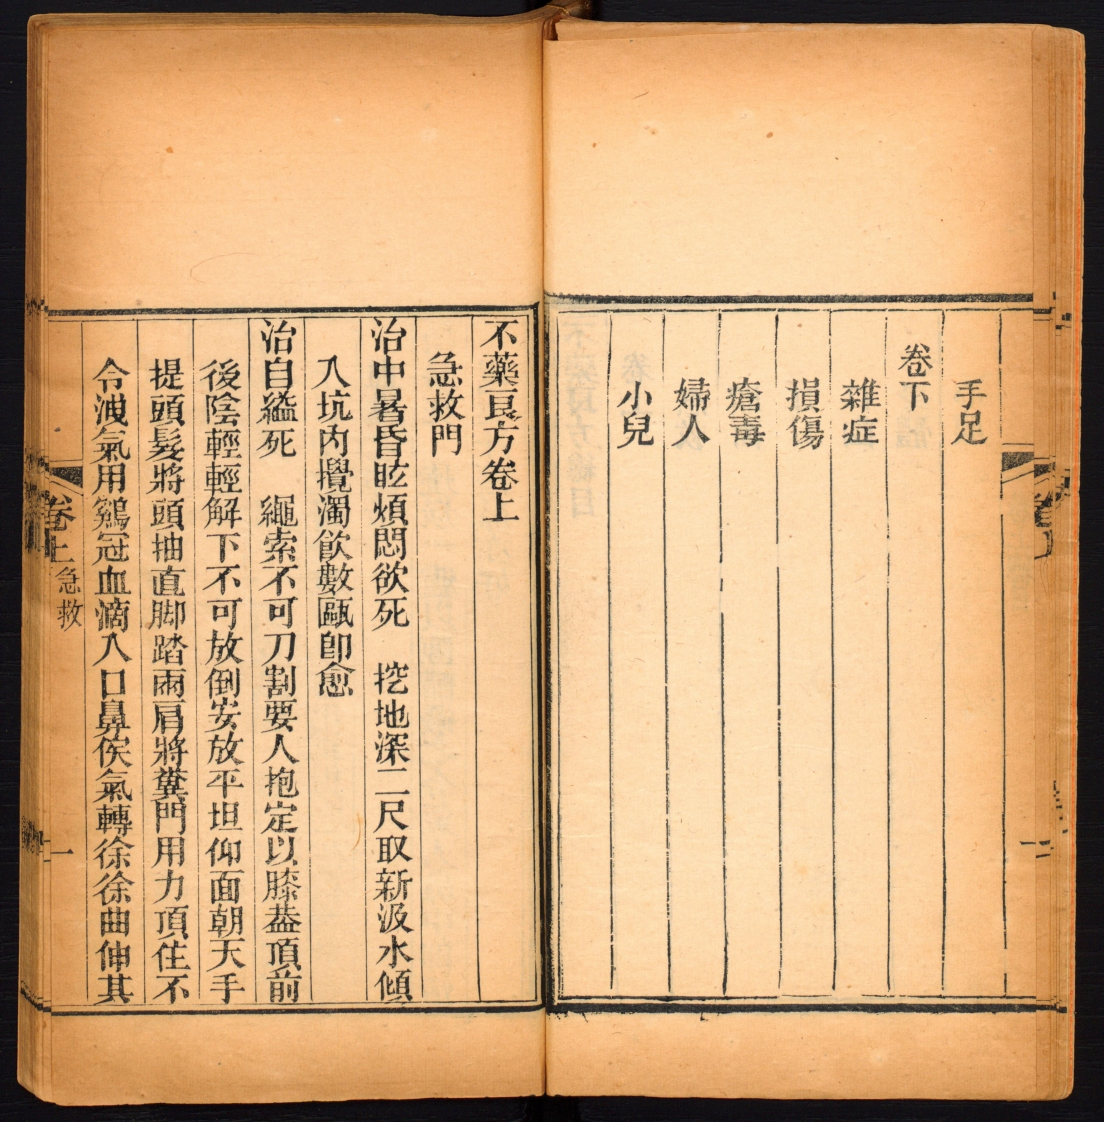 手足
卷下
雜症
損傷
瘡毒
婦人
小兒
二
不藥良方卷上
急救門
治中暑昏眩煩悶欲死　挖地深二尺取新汲水傾
入坑内攪濁飲數甌卽愈
治自縊死　繩索不可刀割要人抱定以膝葢頂前
後陰輕輕解下不可放倒安放平坦仰面朝天手
提頭髮將頭抽直脚踏兩肩將糞門用力頂住不
令洩氣用鷄冠血滴入口鼻俟氣轉徐徐曲伸其
卷上
急救
一